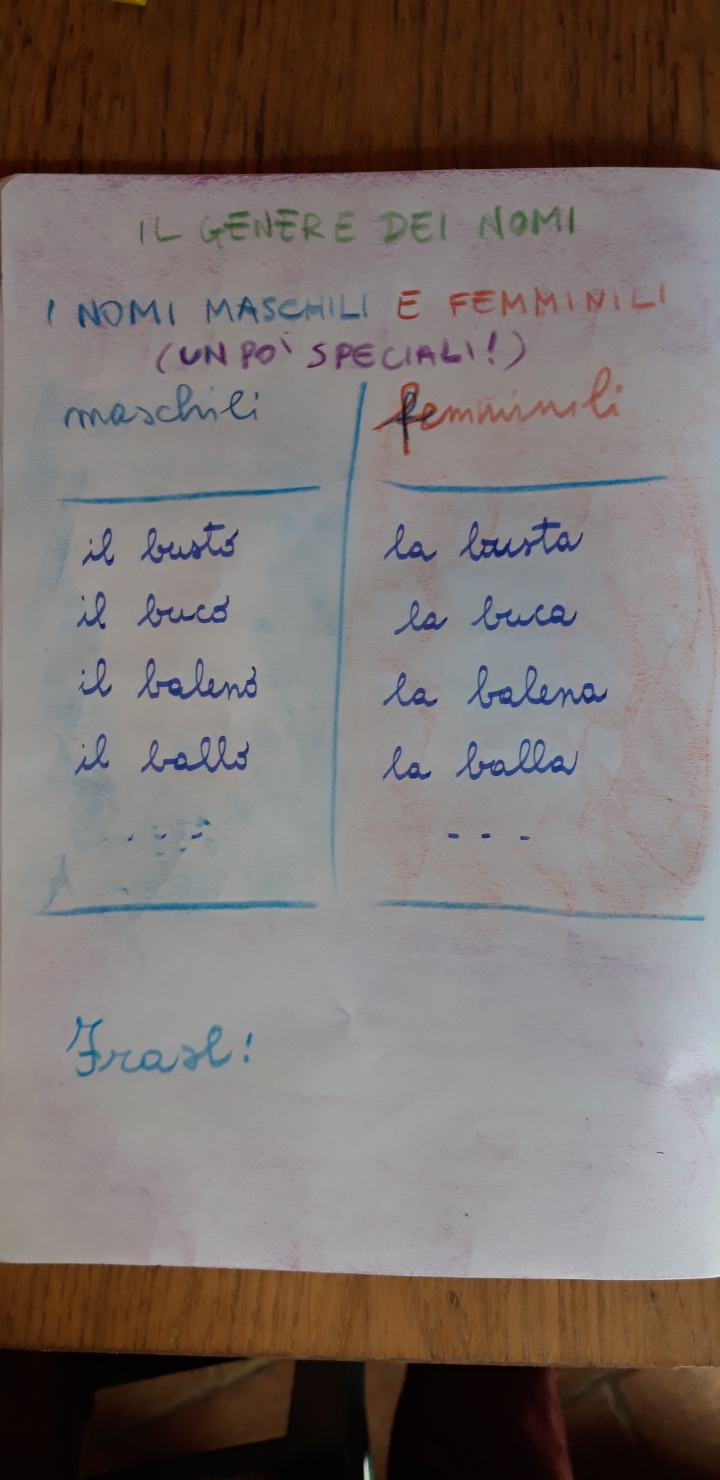 IL GENERE DEI NOMI
I NOMI MASCHILI E FEMMINILI
(UN PO' SPECIALI!)
maschili femminili
il busto la busta
il buco la buca
il baleno la balena
il ballo la balla
... ---
Frasi: